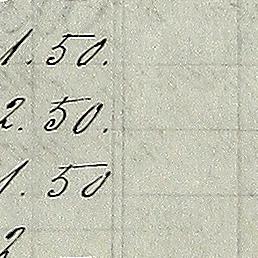 1. 50.
2. 50.
1. 50
2